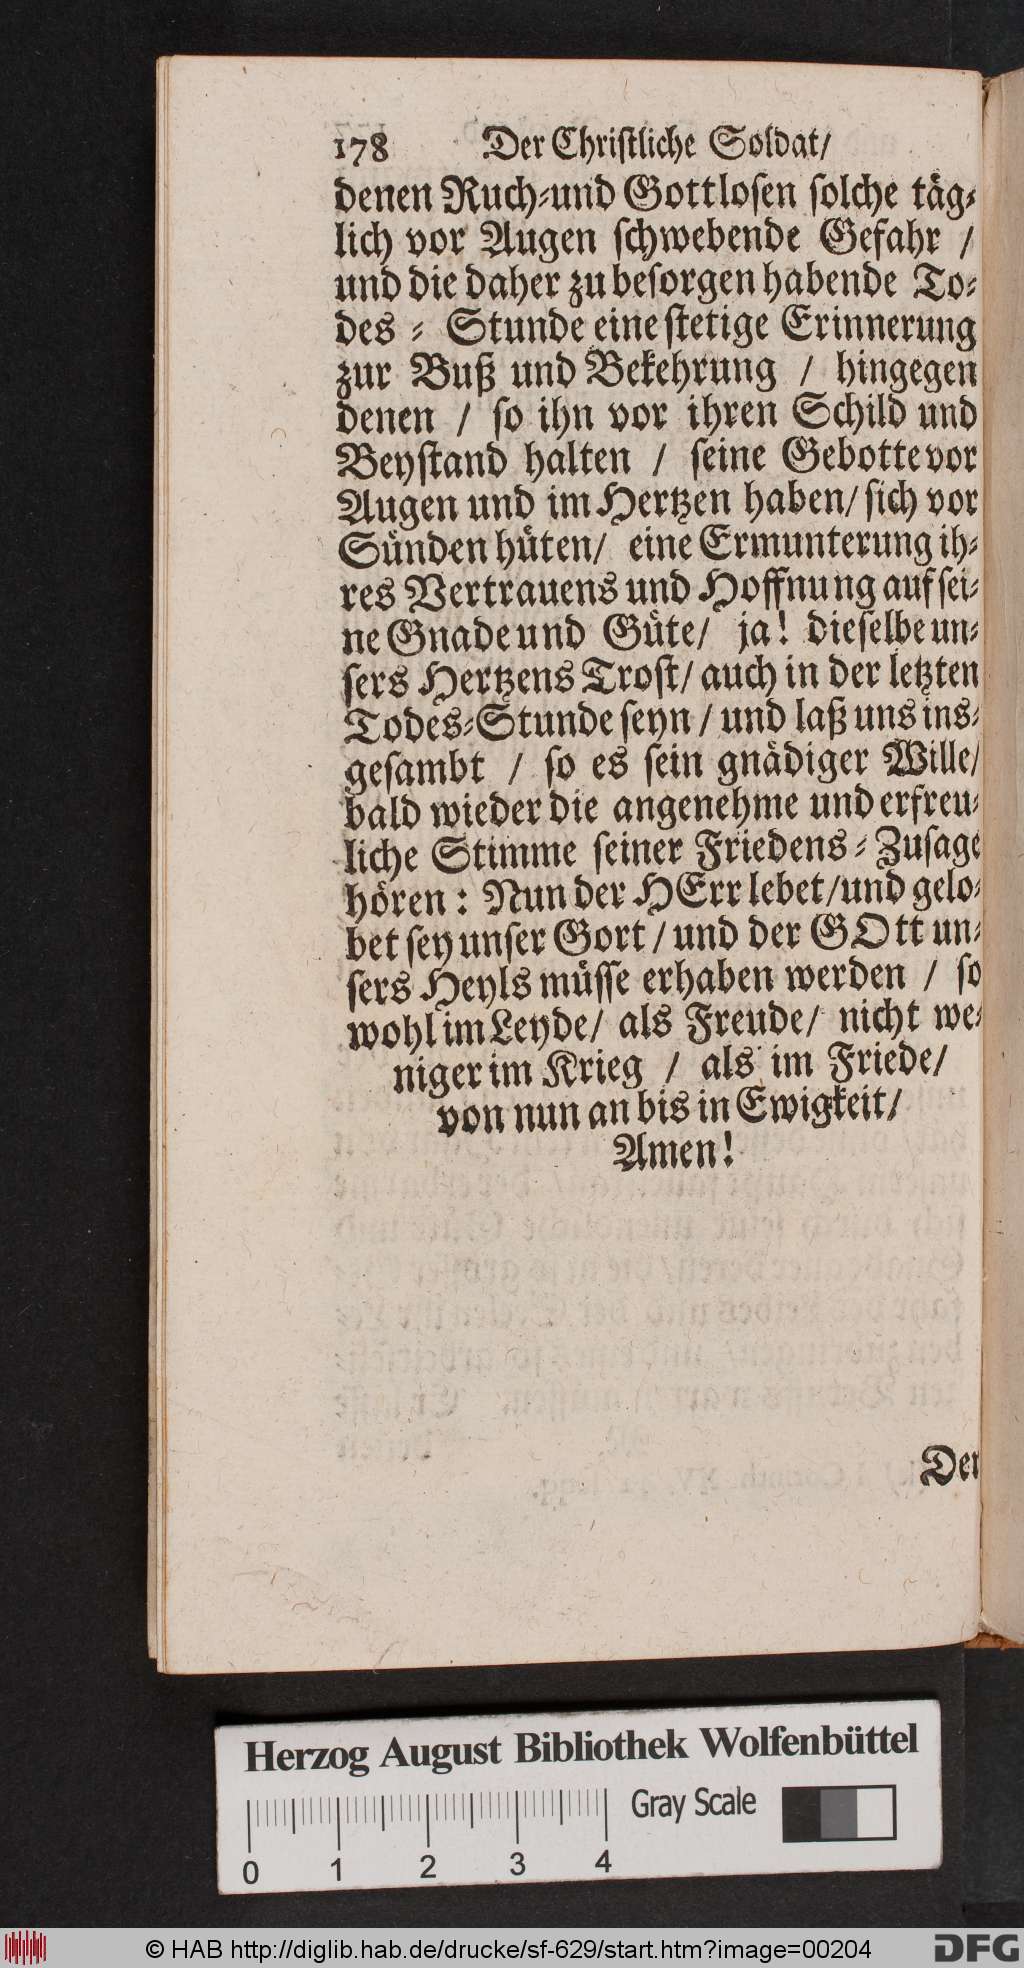 178 Der Chriſtliche Soldat/
denen Ruch-und Gottloſen ſolche täg-
lich vor Augen ſchwebende Gefahr /
und die daher zu beſorgen habende To-
des - Stunde eine ſtetige Erinnerung
zur Buß und Bekehrung / hingegen
denen / ſo ihn vor ihren Schild und
Beyſtand halten / ſeine Gebotte vor
Augen und im Hertzen haben/ ſich vor
Sünden hüten/ eine Ermunterung ih-
res Vertrauens und Hoffnung auf ſei-
ne Gnade und Güte/ ja! dieſelbe un-
ſers Hertzens Troſt/ auch in der letzten
Todes-Stunde ſeyn / und laß uns ins-
geſambt / ſo es ſein gnädiger Wille/
bald wieder die angenehme und erfreu-
liche Stimme ſeiner Friedens - Zuſage
hören: Nun der HErr lebet/und gelo-
bet ſey unſer Gort / und der GOtt un-
ſers Heyls müſſe erhaben werden / ſo
wohl im Leyde/ als Freude/ nicht we-
niger im Krieg / als im Friede/
von nun an bis in Ewigkeit/
Amen!
Der
Herzog August Bibliothek Wolfenbüttel
Gray Scale
0 1 2 3 4
© HAB http://diglib.hab.de/drucke/sf-629/start.htm?image=00204
DFG